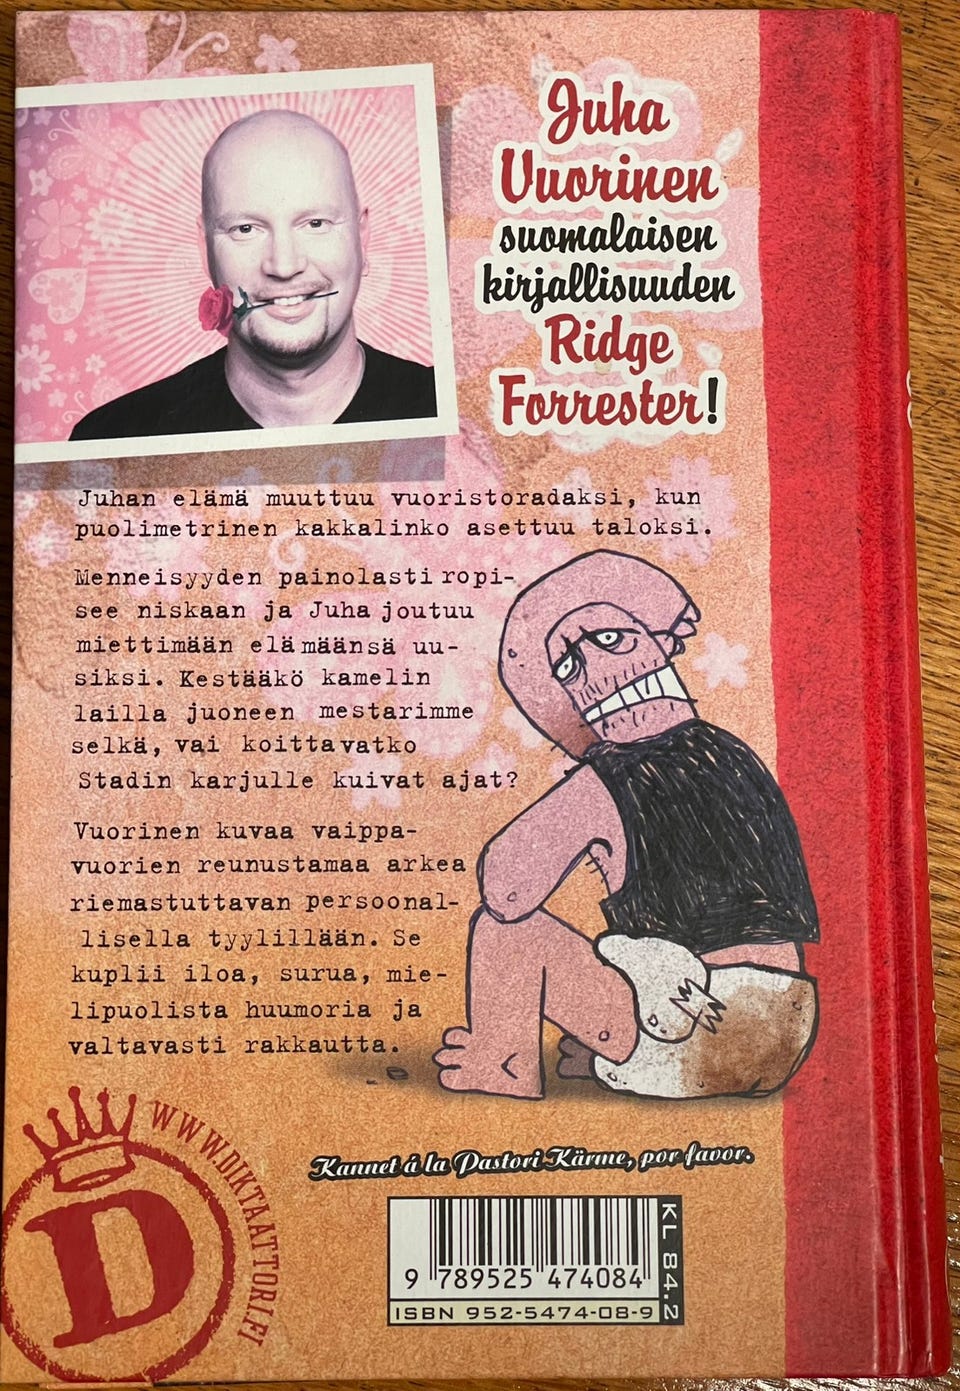 Juha
Vuorinen
suomalaisen
kirjallisuuden
Ridge
Forrester!
Juhan elämä muuttuu vuoristoradaksi, kun
puolimetrinen kakkalinko asettuu taloksi.
Menneisyyden painolasti ropi-
see niskaan ja Juha joutuu
miettimään elämäänsä uu-
siksi. Kestääkö kamelin
lailla juoneen mestarimme
selkä, vai koittavatko
Stadin karjulle kuivat ajat?
Vuorinen kuvaa vaippa-
vuorien reunustamaa arkea
riemastuttavan persoonal-
lisella tyylillään. Se
kuplii iloa, surua, mie-
lipuolista huumoria ja
valtavasti rakkautta.
WWW.DIKTAATTORI.FI
D
Kannet á la Pastori Kärme, por favor.
KL 84.2
9 789525 474084
ISBN 952-5474-08-9